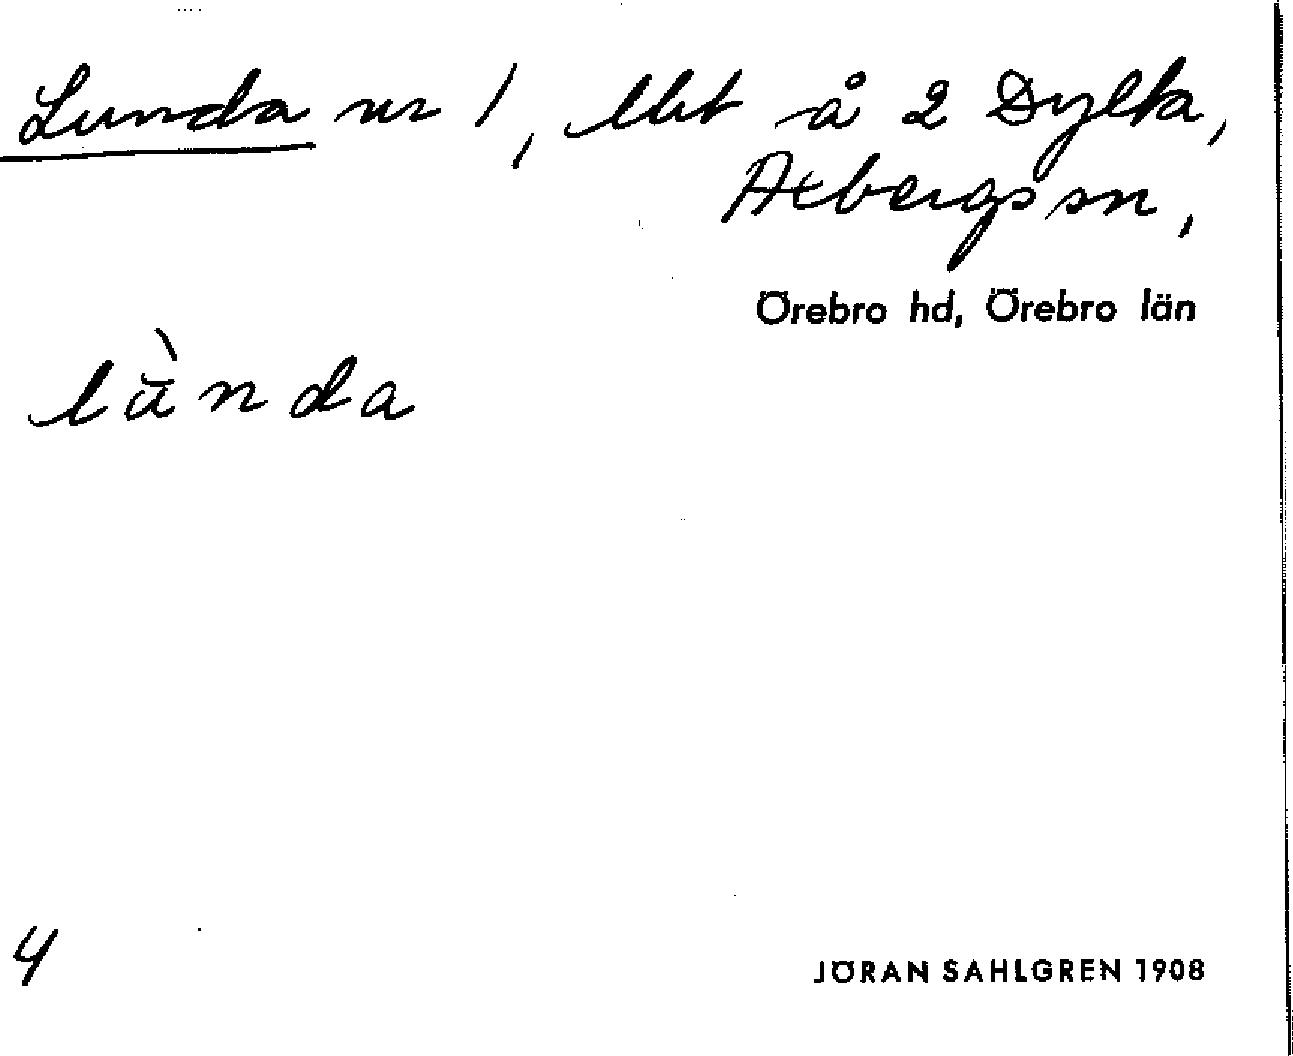 Lunda nr 1, lht å 2 Dylta,
Axbergs sn,
Örebro hd, Örebro län
lù̄nda
4
JÖRAN SAHLGREN 1908